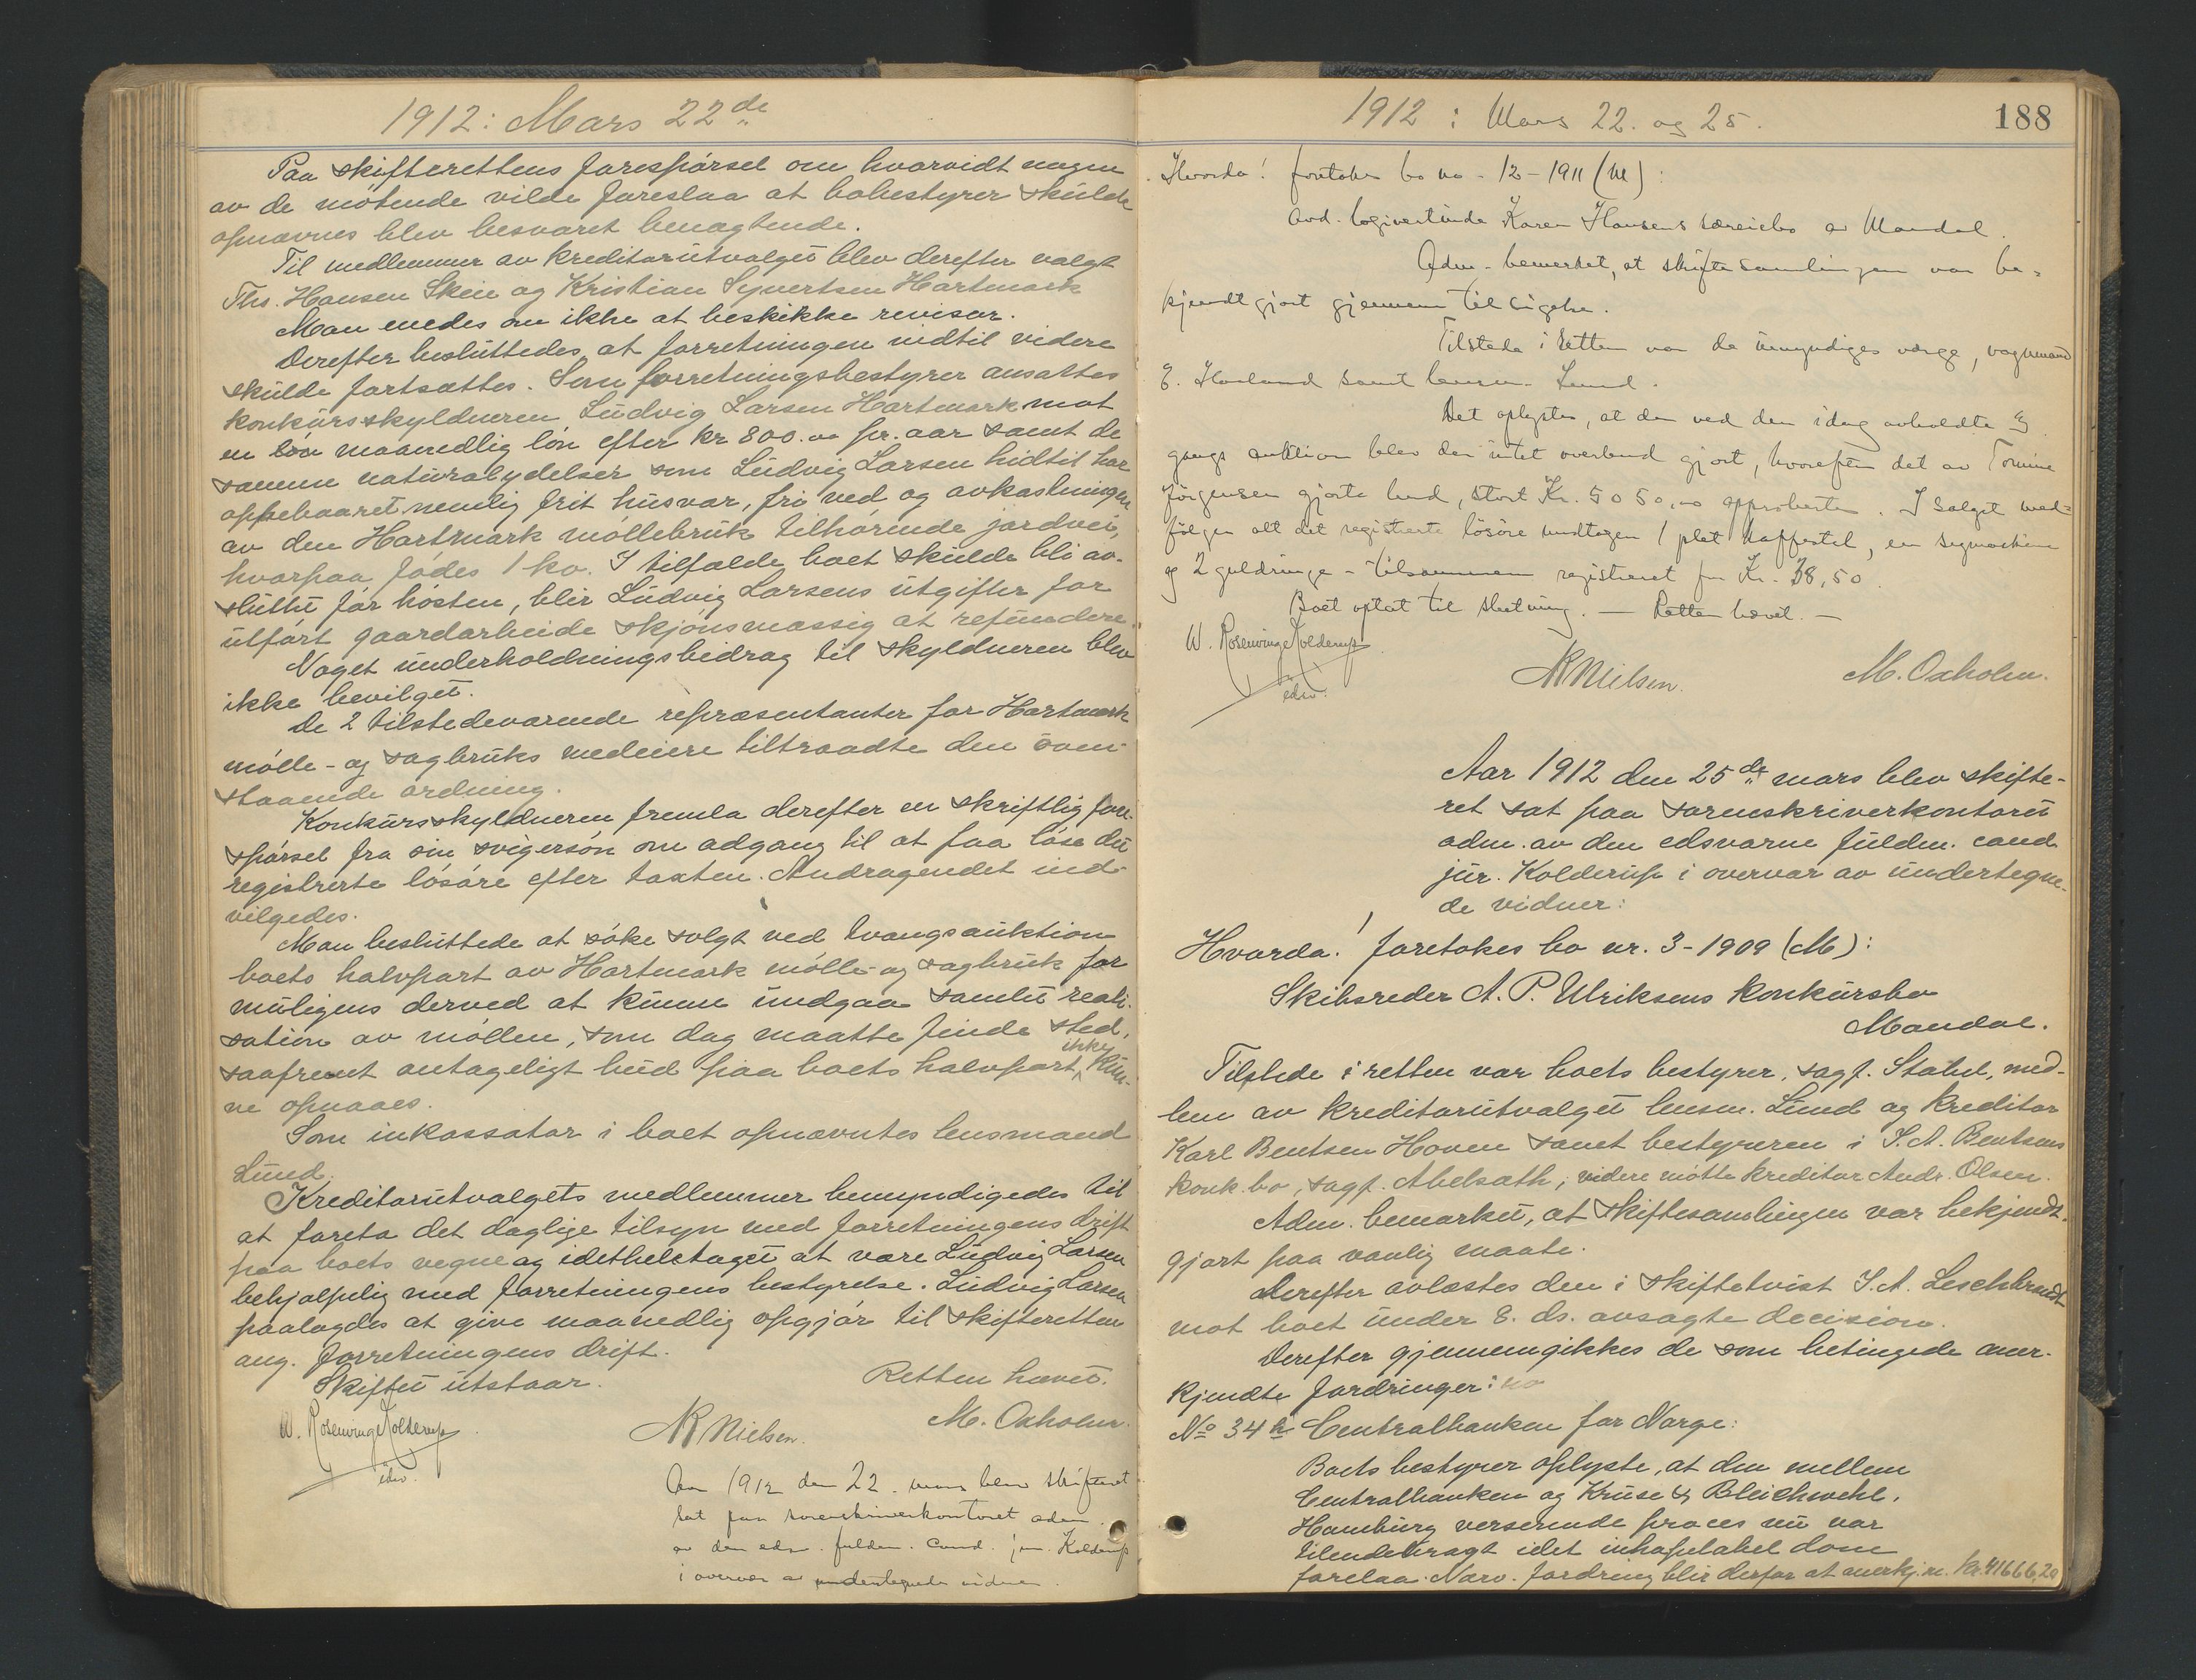 1912: Mars 22de
Paa skifterettens forespørsel om hvorvidt nogen
av de møtende vilde foreslaa at bobestyrer skulde
opnævnes blev besvaret benægtende.
Til medlemmer av kreditorutvalget blev derefter valgt
Ths. Hansen Skeie og Kristian Syvertsen Hartmark
Man enedes om ikke at beskikke revisor.
Derefter besluttedes at forretningen indtil videre
skulde fortsættes. Som forretningsbestyrer ansattes
konkursskyldneren Ludvig Larsen Hartmark mot
en løn maanedlig løn efter kr 800.00 pr. aar samt de
samme naturalydelser som Ludvig Larsen hidtil har
oppebaaret nemlig frit husvær, fri ved og avkastningen
av den Hartmark møllebruk tilhørende jordvei,
hvorpaa fødes 1 ko. I tilfælde boet skulde bli av-
sluttet før høsten, blir Ludvig Larsens utgifter for
utført gaardarbeide skjønsmæssig at refundere.
Noget underholdningsbidrag til skyldneren blev
ikke bevilget.
De 2 tilstedeværende repræsentanter for Hartmark
mølle- og sagbruks medeiere tiltraadte den oven-
staaende ordning.
Konkursskyldneren fremla derefter en skriftlig fore-
spørsel fra sin svigersøn om adgang til at faa løse det
registrerte løsøre efter taxten. Andragendet ind-
vilgedes.
Man besluttede at søke solgt ved tvangsauktion
boets halvpart av Hartmark mølle- og sagbruk for
muligens derved at kunne undgaa samlet reali-
sation av møllen, som dog maatte finde sted,
saafremt antageligt bud paa boets halvpart ikke kun-
ne opnaaes.
Som inkassator i boet opnævntes lensmand
Lund.
Kreditorutvalgets medlemmer bemyndigedes til
at foreta det daglige tilsyn med forretningens drift
paa boets vegne og idetheletaget at være Ludvig Larsen
behjælpelig med forretningens bestyrelse. Ludvig Larsen
paalagdes at give maanedlig opgjør til skifteretten
ang. forretningens drift.
Skiftet utstaar.
Retten hævet.
W. Rosenvinge Kolderup
edsv.
NR Nielsen.
M. Oxholm.
Aar 1912 den 22. mars blev skifteret
sat paa sorenskriverkontoret adm.
av den edsv. fuldm. cand. jur. Kolderup
i overvær av undertegnede vidner.
1912 : Mars 22. og 25.
188
Hvorda! foretokes bo no. 12-1911 (M):
avd. logivertinde Karen Hansens særeiebo av Mandal.
Adm. bemerket, at skiftesamlingen var be-
kjendtgjort gjennem tilsigelse.
Tilstede i retten var de umyndiges verge, vognmand
E. Haaland samt lensm. Lund.
Det oplystes, at der ved den idag avholdte
gangs auktion blev der intet overbud gjort, hvorefter det av Tomine
Jørgensen gjorte bud, stort Kr. 5050,00 approbertes. I salget med-
følger alt det registrerte løsøre undtagen 1 plet kaffestel, en symaskine
og 2 guldringe - tilsammen registreret for Kr. 38,50.
Boet optat til slutning. — Retten hævet. —
W. Rosenvinge Kolderup
edsv.
NR Nielsen.
M. Oxholm.
Aar 1912 den 25de mars blev skifte-
ret sat paa sorenskriverkontoret
adm. av den edsvorne fuldm. cand.
jur. Kolderup i overvær av undertegne-
de vidner:
Hvorda! foretokes bo nr. 3-1909 (M):
Skibsreder A. P. Ulriksens konkursbo
Mandal.
Tilstede i retten var boets bestyrer, sagf. Stabel, med-
lem av kreditorutvalget lensm. Lund og kreditor
Karl Bentsen Hoven samt bestyreren i S. A. Bentsens
konk.bo, sagf. Abelsæth; videre møtte kreditor Andr. Olsen.
Adm. bemærket, at skiftesamlingen var bekjendt-
gjort paa vanlig maate.
Derefter avlæstes den i skiftetvist S. A. Leschbrandt
mot boet under 8. ds. avsagte decision.
Derefter gjennemgikkes de som betingede aner-
kjendte fordringer: no
No 34 h Centralbanken for Norge:
Boets bestyrer oplyste, at den mellem
Centralbanken og Kruse & Bleichwehl,
Hamburg verserende proces nu var
tilendebragt idet inhapelabel dom
forelaa. Nærv. fordring blir derfor at anerkj. m. kr. 41666,20